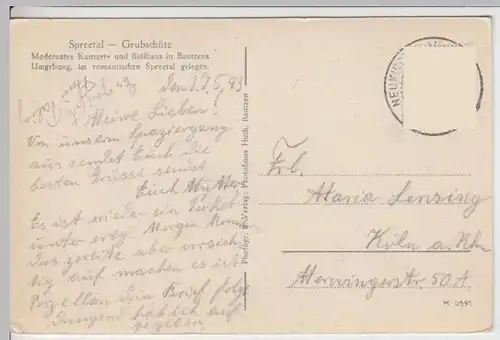 Spreetal — Grubschütz
Modernstes Konzert- und Ballhaus in Bautzens
Umgebung, im romantischen Spreetal gelegen.
den 17.5.43
Meine Lieben!
Von unserm Spaziergang
aus sendet Euch die
besten Grüsse
Euch Mutter
Es ist wieder ein Paket
unterwegs. Morgen
das zweite aber vorsich
tig auf machen es ist
Porzellan drin Brief folgt
hab ich auf
gegeben.
Photogr. u. Verlag: Photohaus Huth, Bautzen
NEUKIR
Frl.
Maria Lensing
Köln a. Rhn
Merowingerstr. 50 A.
M 0591